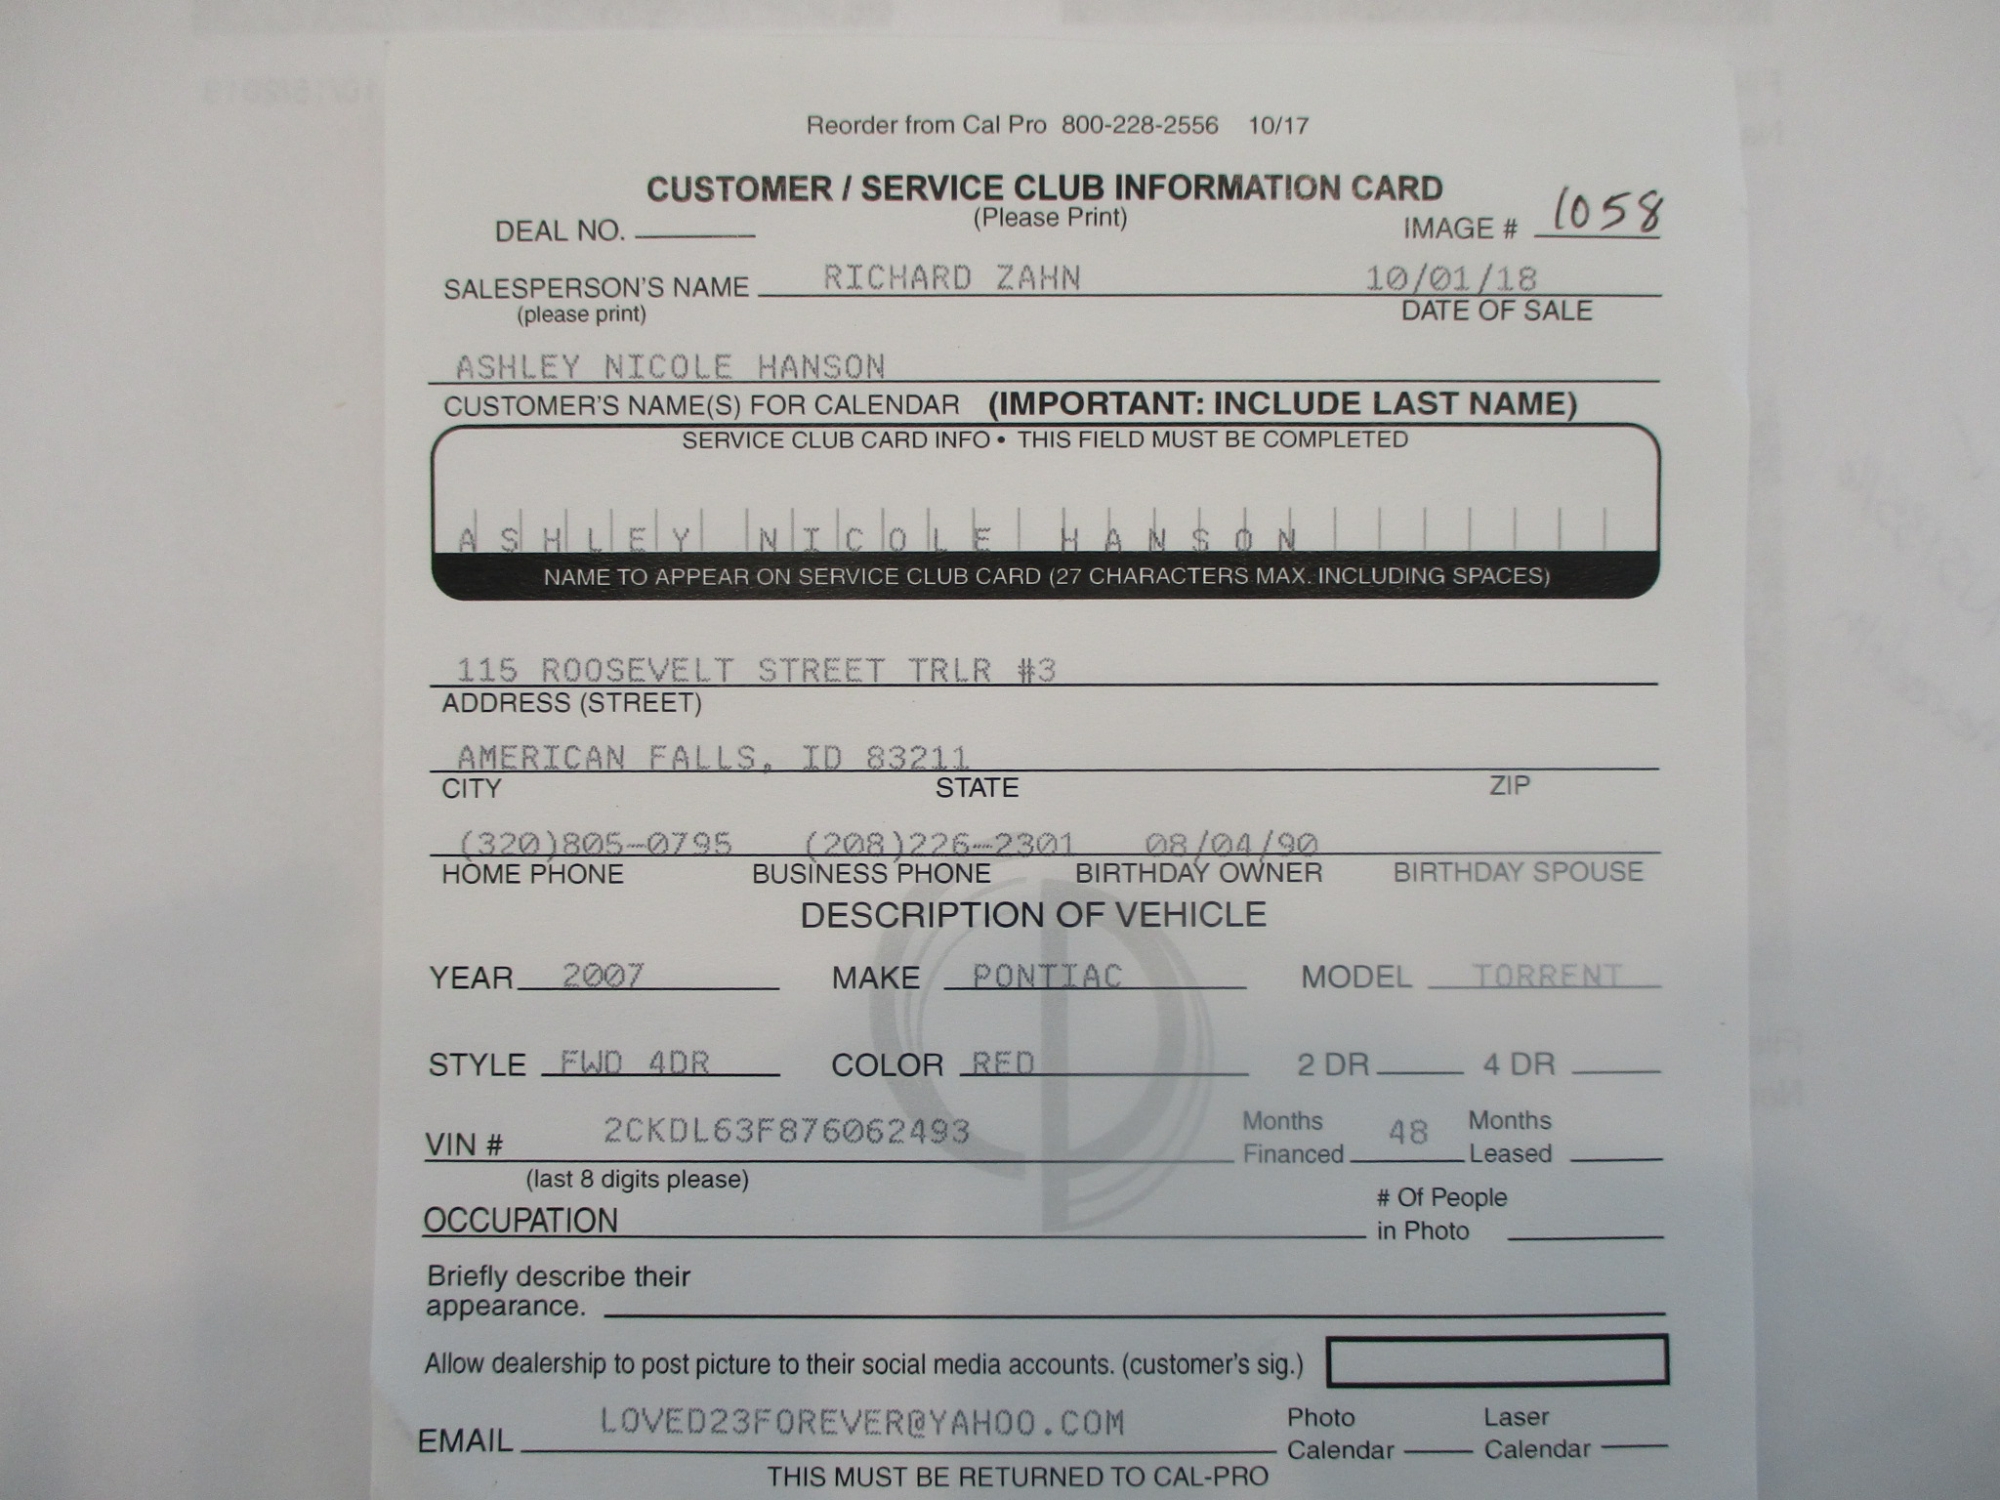 Reorder from Cal Pro 800-228-2556 10/17
CUSTOMER / SERVICE CLUB INFORMATION CARD
(Please Print)
DEAL NO. IMAGE # 1058
SALESPERSON'S NAME RICHARD ZAHN 10/01/18
(please print) DATE OF SALE
ASHLEY NICOLE HANSON
CUSTOMER'S NAME(S) FOR CALENDAR (IMPORTANT: INCLUDE LAST NAME)
SERVICE CLUB CARD INFO • THIS FIELD MUST BE COMPLETED
ASHLEY NICOLE HANSON
NAME TO APPEAR ON SERVICE CLUB CARD (27 CHARACTERS MAX. INCLUDING SPACES)
115 ROOSEVELT STREET TRLR #3
ADDRESS (STREET)
AMERICAN FALLS, ID 83211
CITY STATE ZIP
(320)805-0795 (208)226-2301 08/04/90
HOME PHONE BUSINESS PHONE BIRTHDAY OWNER BIRTHDAY SPOUSE
DESCRIPTION OF VEHICLE
YEAR 2007 MAKE PONTIAC MODEL TORRENT
STYLE FWD 4DR COLOR RED 2 DR 4 DR
VIN # 2CKDL63F876062493 Months Financed 48 Months Leased
(last 8 digits please)
OCCUPATION # Of People in Photo
Briefly describe their
appearance.
Allow dealership to post picture to their social media accounts. (customer's sig.)
EMAIL LOVED23FOREVER@YAHOO.COM Photo Calendar Laser Calendar
THIS MUST BE RETURNED TO CAL-PRO